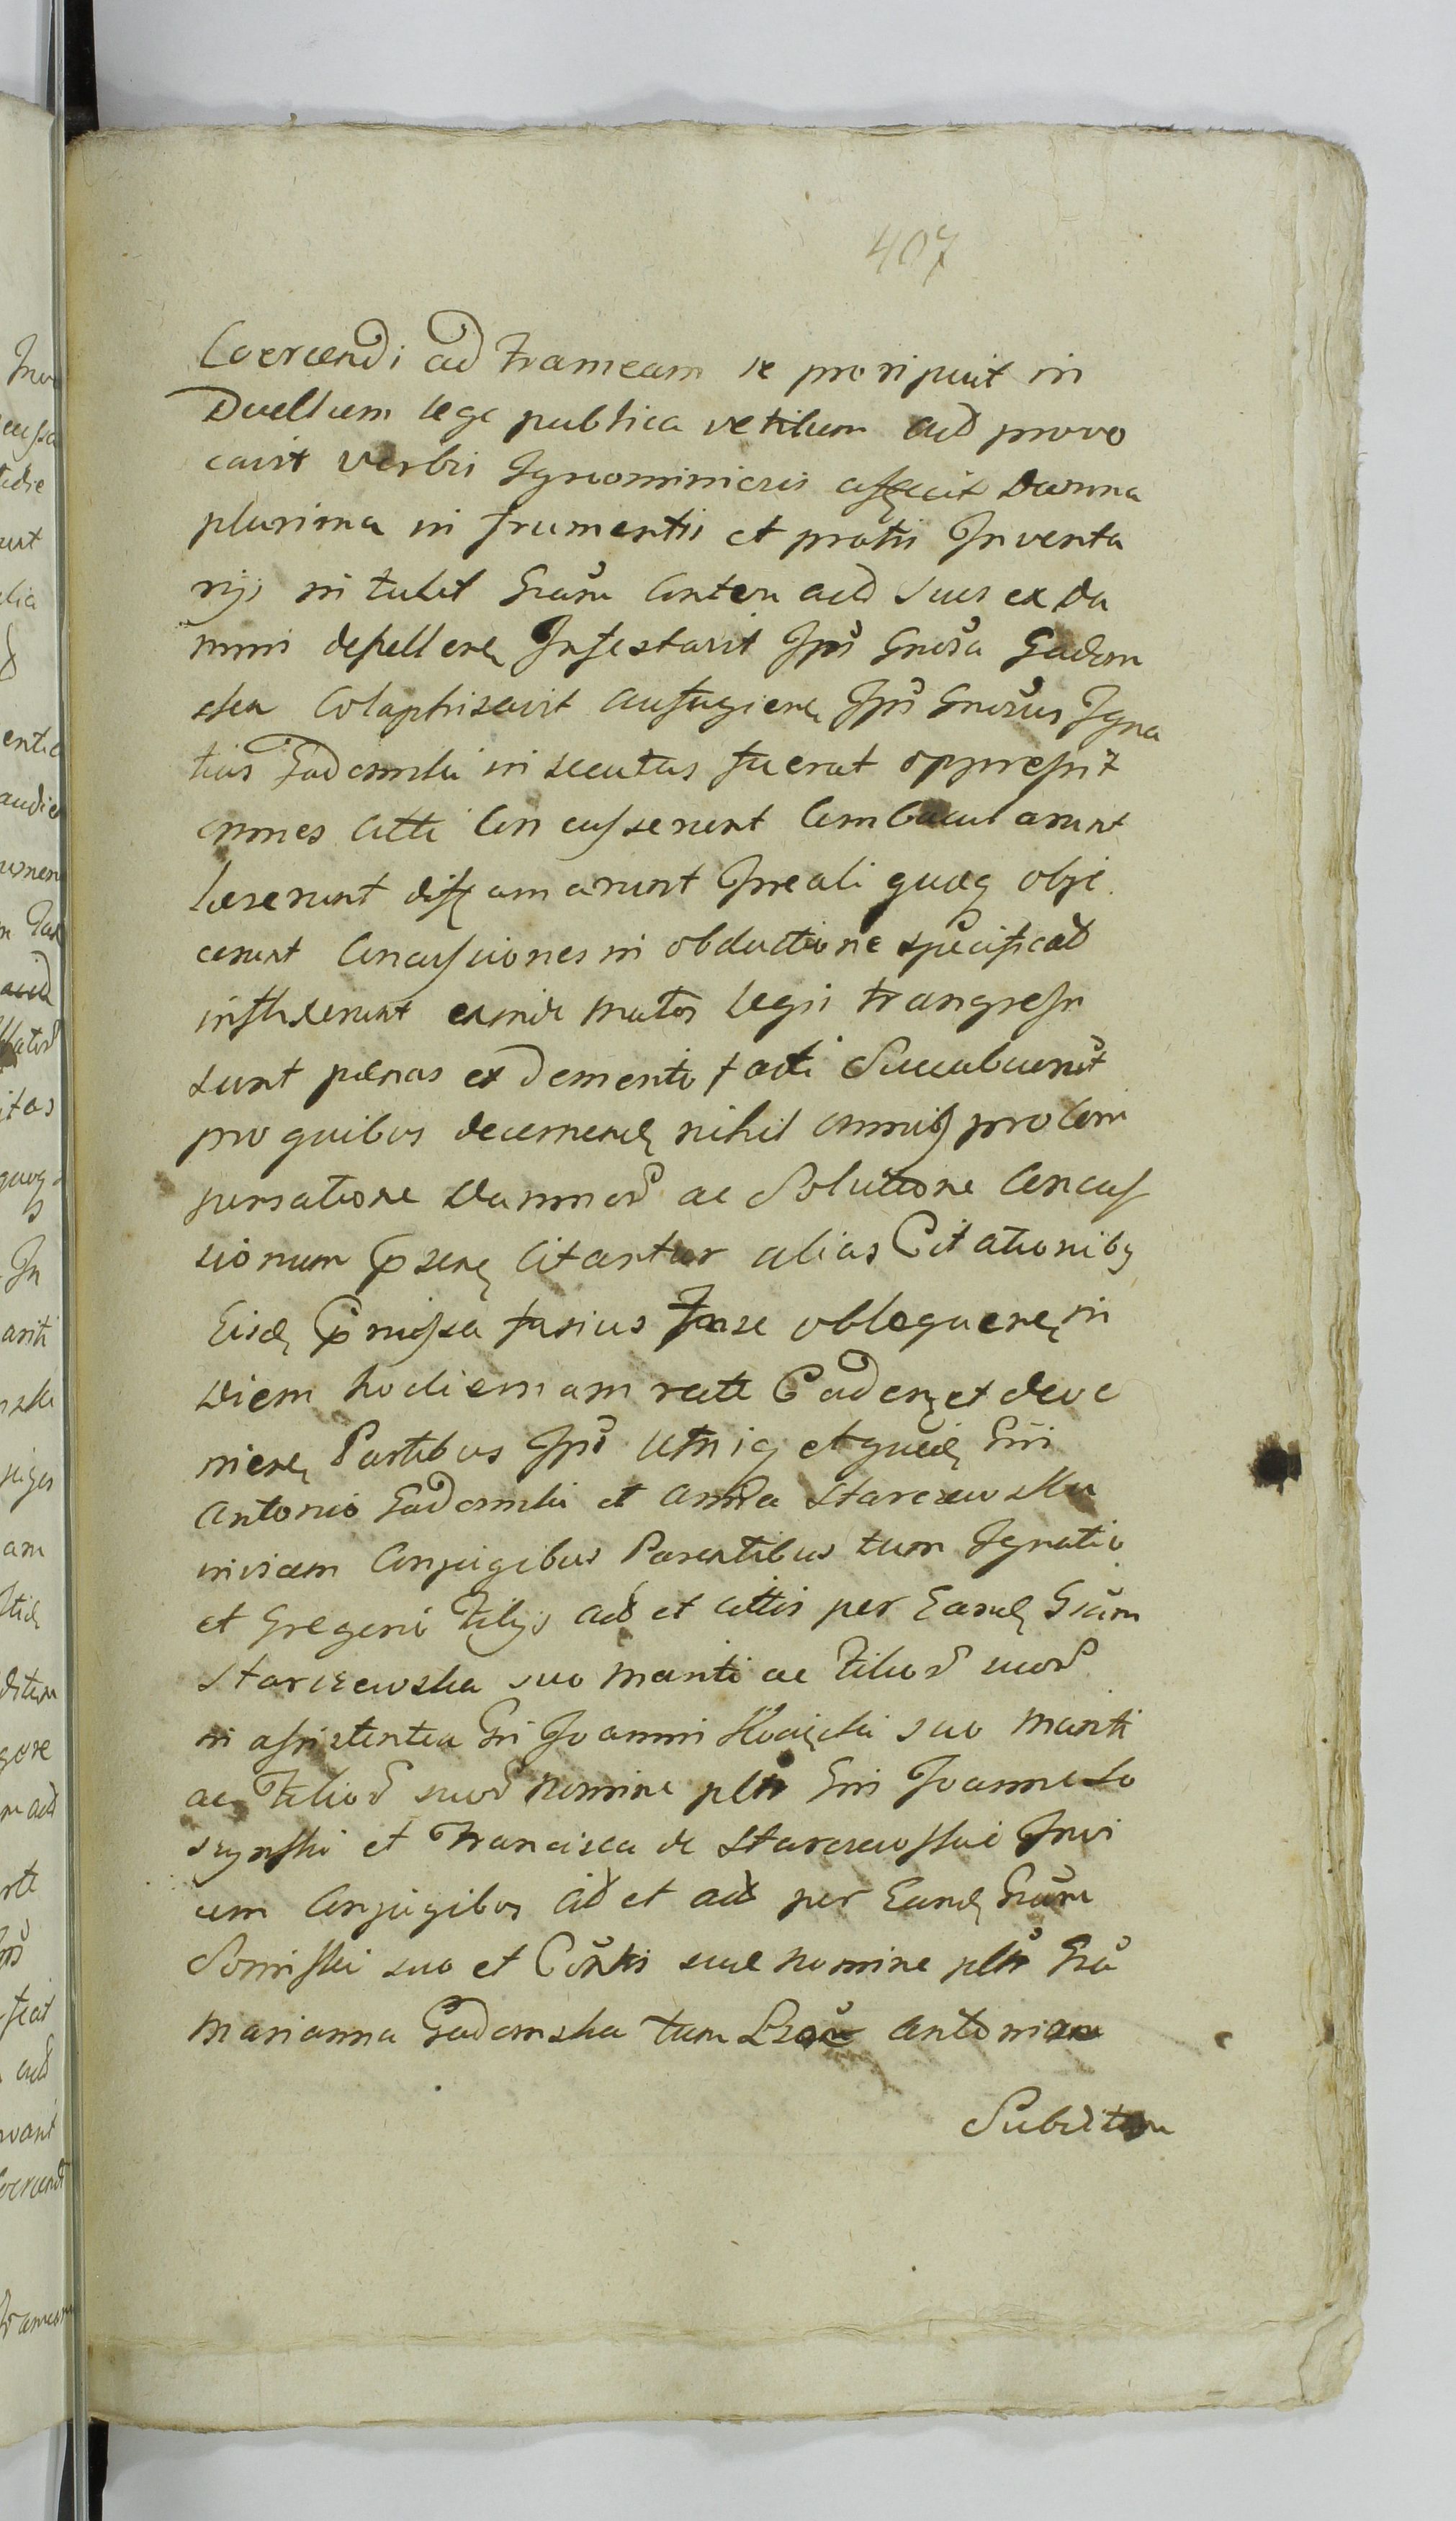 407
Coercendi ad frameam se proripuit in
Duellum lege publica vetitum act provo
cavit verbis Ignominiosis affecit Damna
plurima in frumentis et pratis Inventa
rijs intulit Gsum autem act suis ex da
mnis depellen Infestavit Ipsa Gnosa Gadom
ska Colaphisavit aufugien Ips Gnosus Igna
tius Gadomski insecutus fuerat oppressit
omnes citti Concusserunt Combacularunt
læserunt diffamarunt Irreali quæq obje
cerunt Concussiones in obductione specificat
inflixerunt exinde multos legis transgressi
sunt pænas ex demerito facti Succubuerut
pro quibus decernen nihil omnib pro Com
pensatione Damnor ac Solutione Concus
sionum Pxsen Citantur alias Citationibg
Eisd Pmissa fusius In se obloquen in
Diem hodiernam recte Caden et deve
nien Partibus Ips utriq et quid Gsi
Antonio Gadomski et Anna Starczewska
invicem Conjugibus Parentibus tum Ignatio
et Gregorio Filijs act et cittis per Eand Gsum
Starczewska suo Mariti ac Filior suor
in assistentia Gsi Joannis suo Mariti
ac Filior suor nomine pltr Gsi Joanne So
szynski et Francisca de Starczewskie Invi
cem Conjugibus act et act per Eund Gsum
suo et Contis suæ nomine pltr Gsa
Marianna Gadomska tum Antonium
Subditum